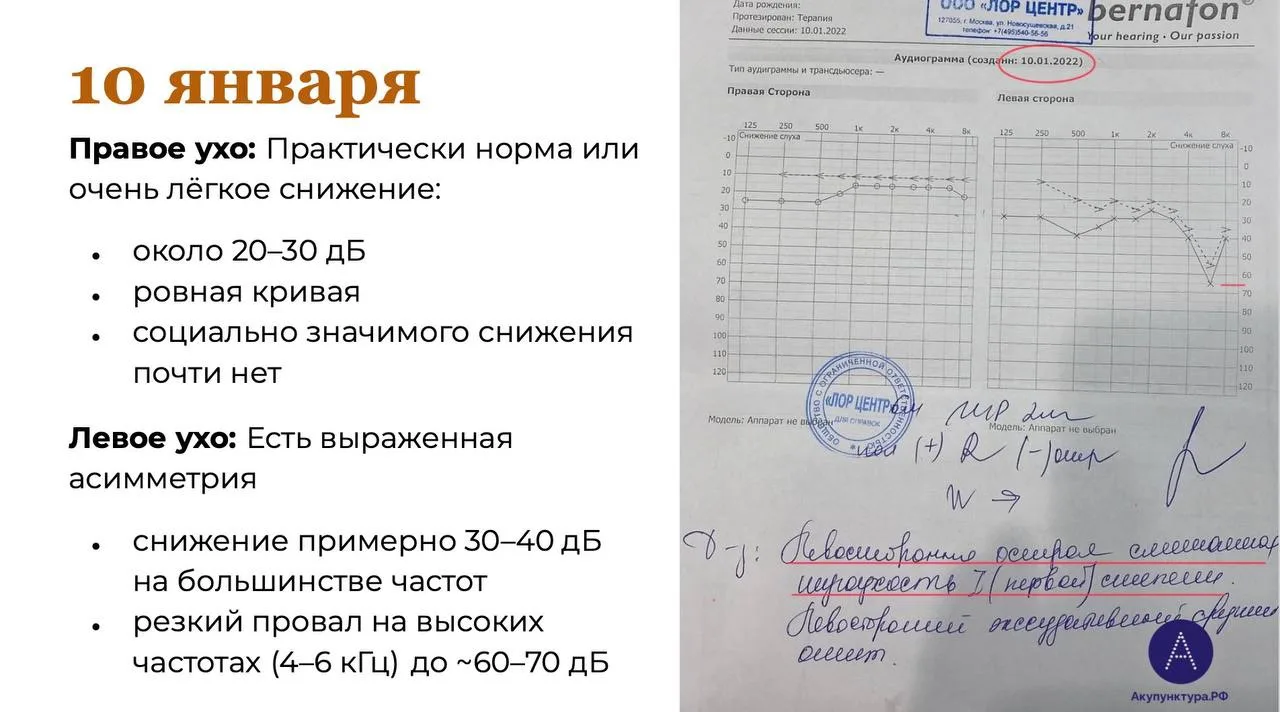 10 января
Правое ухо: Практически норма или
очень лёгкое снижение:
• около 20–30 дБ
• ровная кривая
• социально значимого снижения
почти нет
Левое ухо: Есть выраженная
асимметрия
• снижение примерно 30–40 дБ
на большинстве частот
• резкий провал на высоких
частотах (4–6 кГц) до ~60–70 дБ
Дата рождения:
Протезирован: Терапия
Данные сессии: 10.01.2022
ООО «ЛОР ЦЕНТР»
127055, г. Москва, ул. Новосущевская, д.21
телефон: +7(495)540-56-56
bernafon®
Your hearing • Our passion
Аудиограмма (создан: 10.01.2022)
Тип аудиграммы и трансдьюсера: —
Правая Сторона
Левая сторона
125 250 500 1к 2к 4к 8к
Снижение слуха
-10
0
10
20
30
40
50
60
70
80
90
100
110
120
125 250 500 1к 2к 4к 8к
Снижение слуха
-10
0
10
20
30
40
50
60
70
80
90
100
110
120
Модель: Аппарат не выбран
Модель: Аппарат не выбран
ОБЩЕСТВО С ОГРАНИЧЕННОЙ ОТВЕТСТВЕННОСТЬЮ
«ЛОР ЦЕНТР»
ДЛЯ СПРАВОК
(+) R (-)
W →
Д-з: Левосторонняя острая смешанная
тугоухость I (первой) степени.
Левосторонний экссудативный средний
отит.
A
Акупунктура.РФ